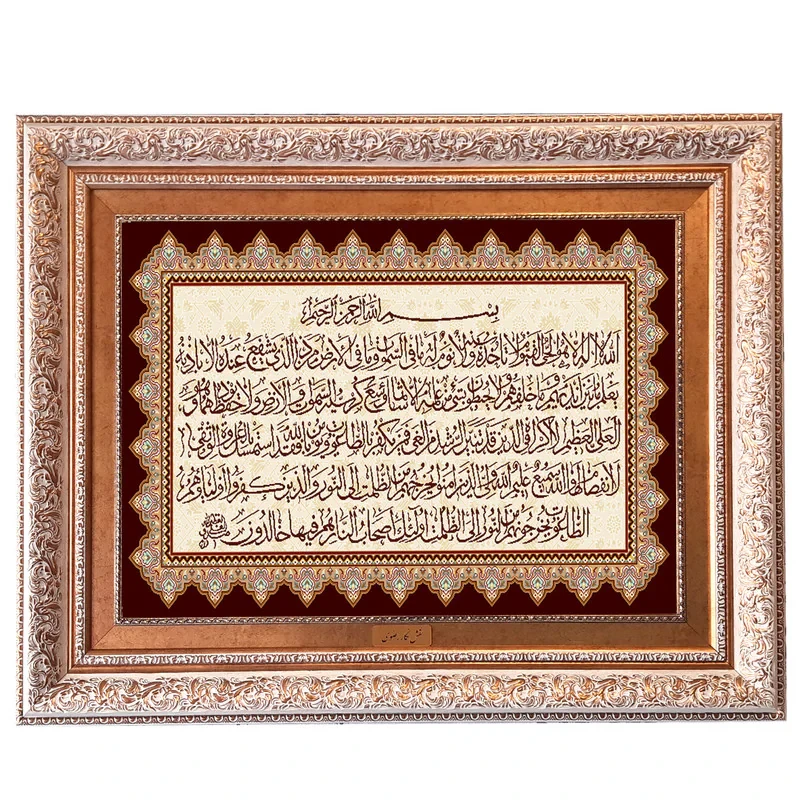 بسم الله الرحمن الرحیم
الله لا اله الا هو الحی القیوم لا تاخذه سنة ولا نوم له ما فی السموات وما فی الارض من ذا الذی یشفع عنده الا باذنه
یعلم ما بین ایدیهم وما خلفهم ولا یحیطون بشئ من علمه الا بما شاء وسع کرسیه السموات والارض ولا یؤده حفظهما وهو
العلی العظیم لا اکراه فی الدین قد تبین الرشد من الغی فمن یکفر بالطاغوت ویؤمن بالله فقد استمسک بالعروة الوثقی
لا انفصام لها والله سمیع علیم الله ولی الذین آمنوا یخرجهم من الظلمات الی النور والذین کفروا اولیاؤهم
الطاغوت یخرجونهم من النور الی الظلمات اولئک اصحاب النار هم فیها خالدون